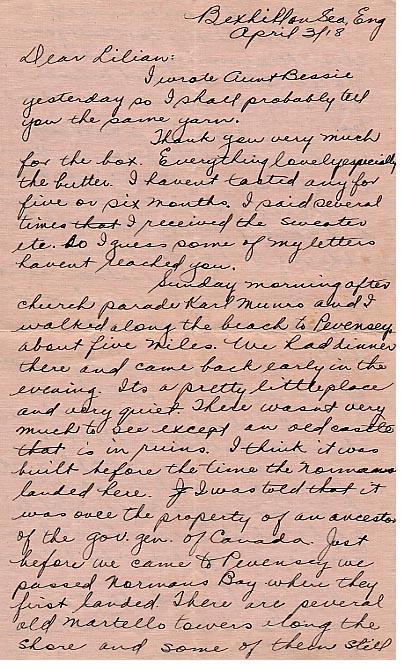 Bexhill on Sea, Eng
April 3/18
Dear Lilian:
I wrote Aunt Bessie
yesterday so I shall probably tell
you the same yarn.
Thank you very much
for the box. Everything lovely especially
the butter. I havent tasted any for
five or six months. I said several
times that I received the sweater
etc. So I guess some of my letters
havent reached you.
Sunday morning after
church parade Karl Munro and I
walked along the beach to Pevensey
about five miles. We had dinner
there and came back early in the
evening. Its a pretty little place
and very quiet. There wasnt very
much to see except an old castle
that is in ruins. I think it was
built before the time the Normans
landed here. I was told that it
was once the property of an ancestor
of the gov. gen. of Canada. Just
before we came to Pevensey we
passed Normans Bay where they
first landed. There are several
old Martello towers along the
shore and some of them still